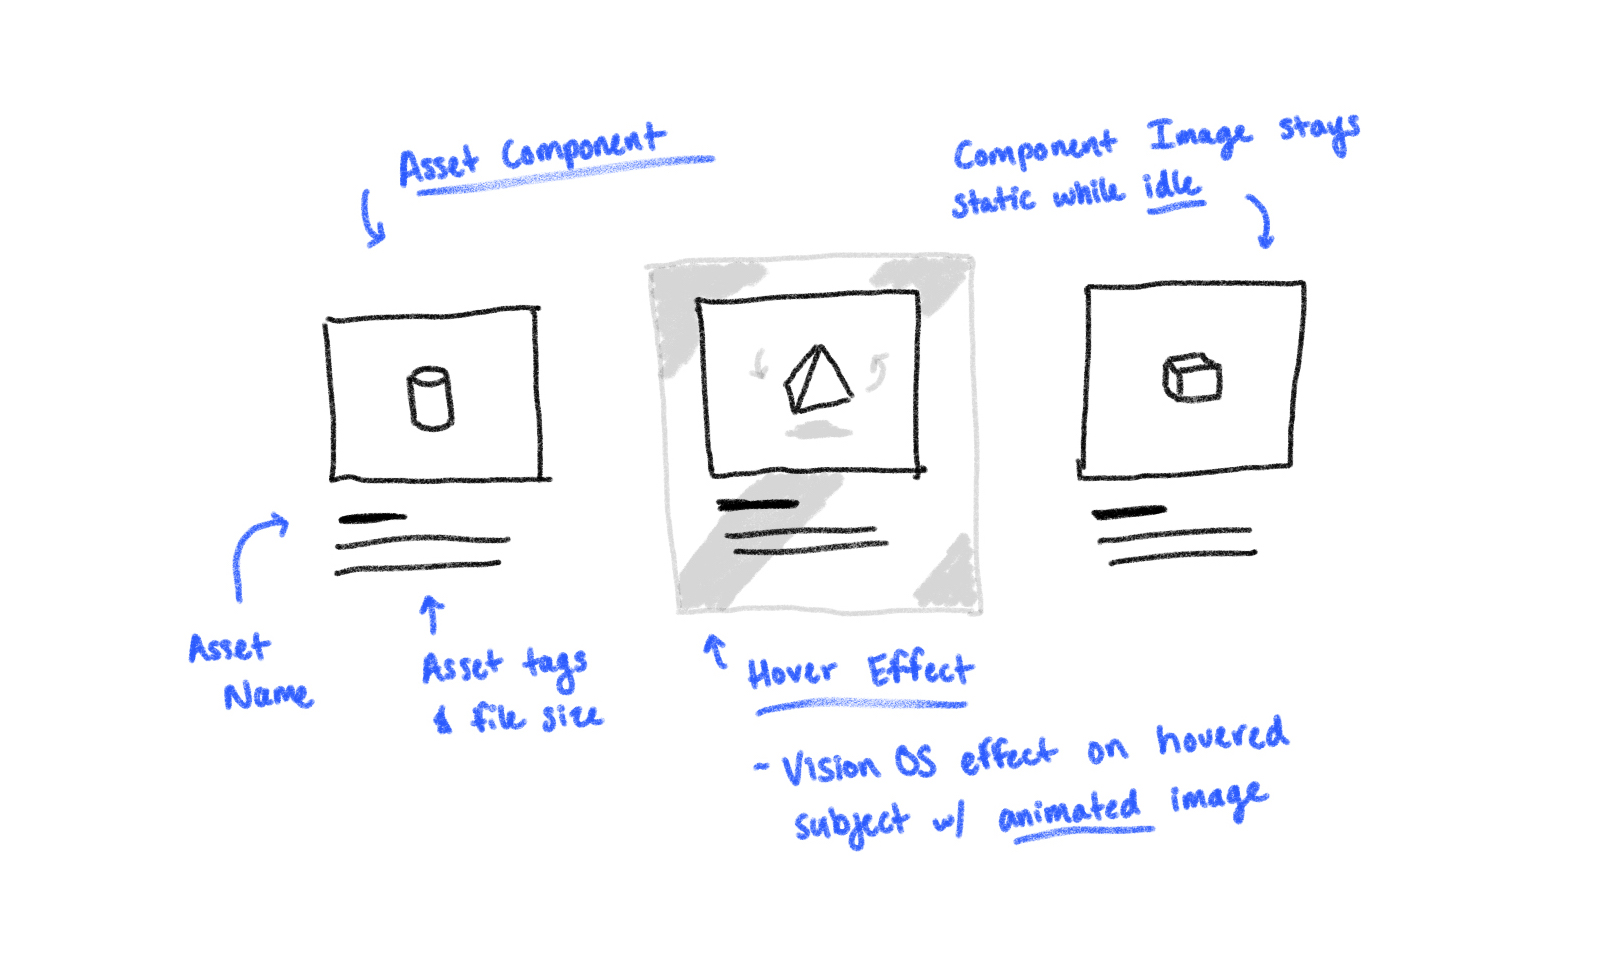 Asset Component
Component Image stays
static while idle
Asset
Name
Asset tags
& file size
Hover Effect
- Vision OS effect on hovered
subject w/ animated image